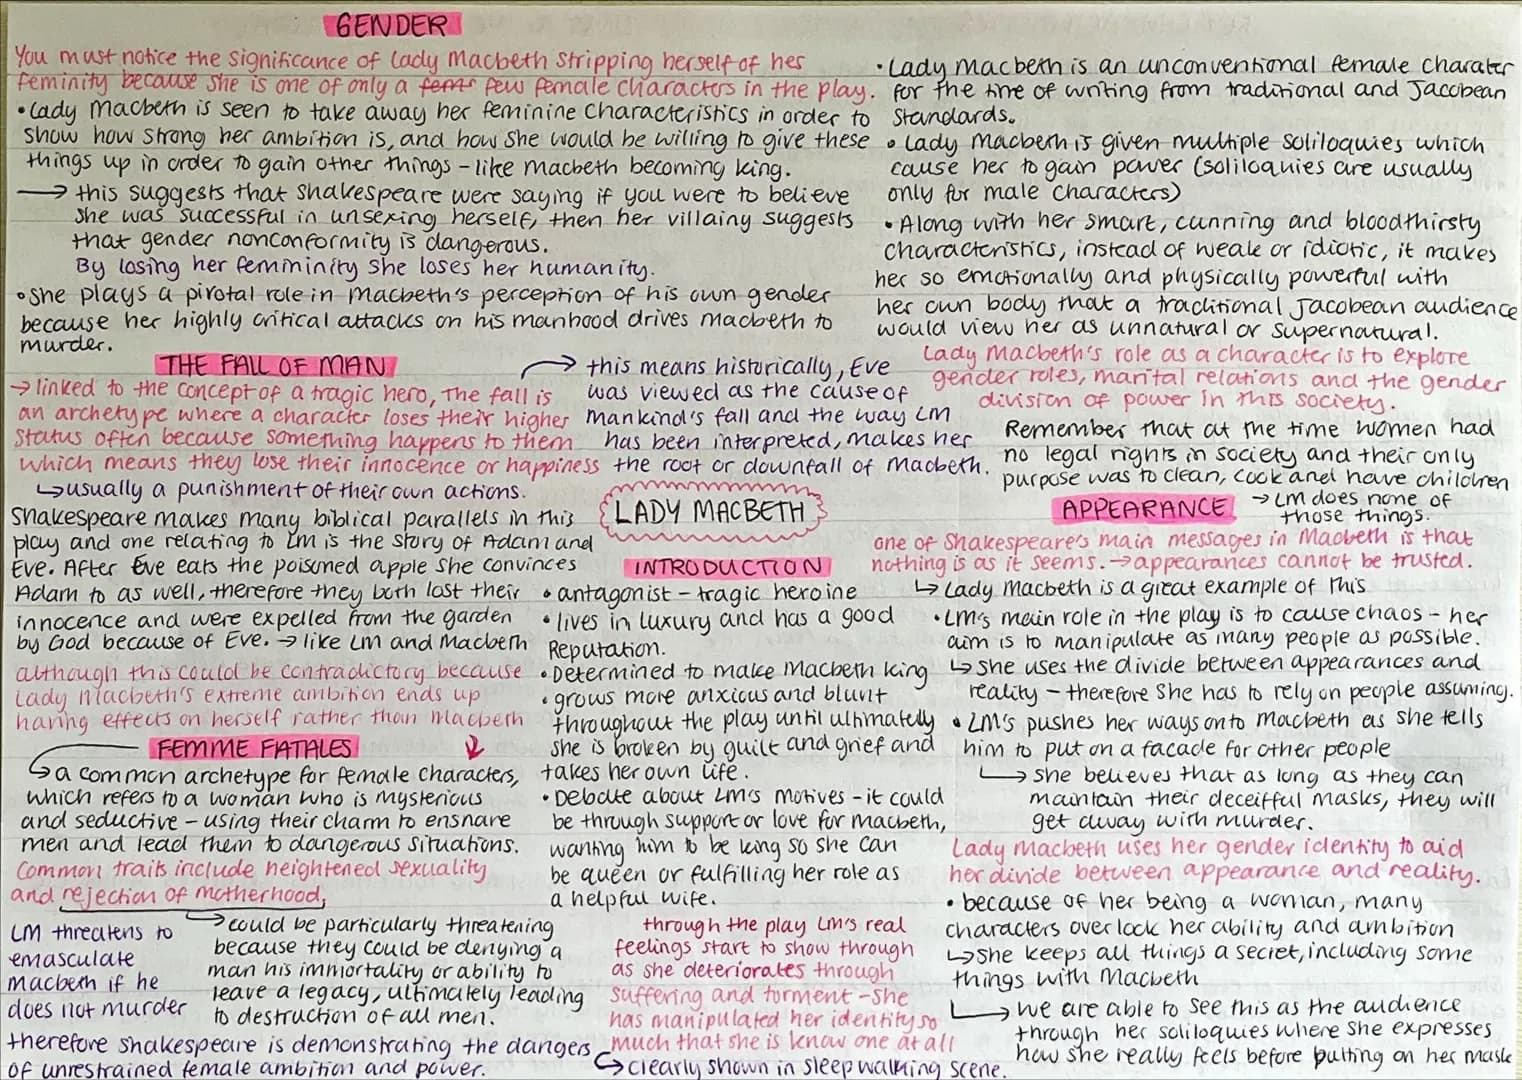 GENDER
You must notice the significance of Lady Macbeth stripping herself of her
feminity because she is one of only a few female characters in the play.
•Lady Macbeth is seen to take away her feminine characteristics in order to
show how strong her ambition is, and how she would be willing to give these
things up in order to gain other things - like Macbeth becoming king.
→ this suggests that Shakespeare were saying if you were to believe
she was successful in unsexing herself, then her villainy suggests
that gender nonconformity is dangerous.
By losing her femininity she loses her humanity.
•She plays a pivotal role in Macbeth's perception of his own gender
because her highly critical attacks on his manhood drives Macbeth to
murder.
•Lady Macbeth is an unconventional female charater
for the time of writing from traditional and Jacobean
Standards.
•Lady Macbeth is given multiple soliloquies which
cause her to gain power (soliloquies are usually
only for male characters)
•Along with her smart, cunning and bloodthirsty
characteristics, instead of weak or idiotic, it makes
her so emotionally and physically powerful with
her own body that a traditional Jacobean audience
would view her as unnatural or supernatural.
Lady Macbeth's role as a character is to explore
gender roles, marital relations and the gender
division of power in this society.
Remember that at the time women had
no legal rights in society and their only
purpose was to clean, cook and have children
→ LM does none of
those things.
THE FALL OF MAN
→ linked to the concept of a tragic hero, The fall is
an archetype where a character loses their higher
status often because something happens to them
which means they lose their innocence or happiness
↳usually a punishment of their own actions.
Shakespeare makes many biblical parallels in this
play and one relating to LM is the story of Adam and
Eve. After Eve eats the poisoned apple she convinces
Adam to as well, therefore they both lost their
innocence and were expelled from the garden
by God because of Eve. → like LM and Macbeth
→ this means historically, Eve
was viewed as the cause of
mankind's fall and the way LM
has been interpreted, makes her
the root or downfall of Macbeth.
although this could be contradictory because
Lady Macbeth's extreme ambition ends up
having effects on herself rather than Macbeth
LADY MACBETH
INTRODUCTION
•antagonist - tragic heroine
•lives in luxury and has a good
Reputation.
•Determined to make Macbeth king
•grows more anxious and blunt
throughout the play until ultimately
she is broken by guilt and grief and
takes her own life.
•Debate about LM's motives - it could
be through support or love for macbeth,
wanting him to be king so she can
be queen or fulfilling her role as
a helpful wife.
through the play LM's real
feelings start to show through
as she deteriorates through
suffering and torment - she
has manipulated her identity so
much that she is know one at all
↳clearly shown in sleepwalking scene.
FEMME FATALES
↳a common archetype for female characters,
which refers to a woman who is mysterious
and seductive - using their charm to ensnare
men and lead them to dangerous situations.
Common traits include heightened sexuality
and rejection of motherhood,
→ could be particularly threatening
because they could be denying a
man his immortality or ability to
leave a legacy, ultimately leading
to destruction of all men.
LM threatens to
emasculate
Macbeth if he
does not murder
therefore Shakespeare is demonstrating the dangers
of unrestrained female ambition and power.
APPEARANCE
one of Shakespeare's main messages in Macbeth is that
nothing is as it seems. → appearances cannot be trusted.
↳ Lady Macbeth is a great example of this
•LM's main role in the play is to cause chaos - her
aim is to manipulate as many people as possible.
↳ she uses the divide between appearances and
reality - therefore she has to rely on people assuming.
•LM's pushes her ways onto Macbeth as she tells
him to put on a facade for other people
↳ she believes that as long as they can
maintain their deceitful masks, they will
get away with murder.
Lady Macbeth uses her gender identity to aid
her divide between appearance and reality.
•because of her being a woman, many
characters overlook her ability and ambition
↳she keeps all things a secret, including some
things with Macbeth
↳ we are able to see this as the audience
through her soliloquies where she expresses
how she really feels before putting on her mask